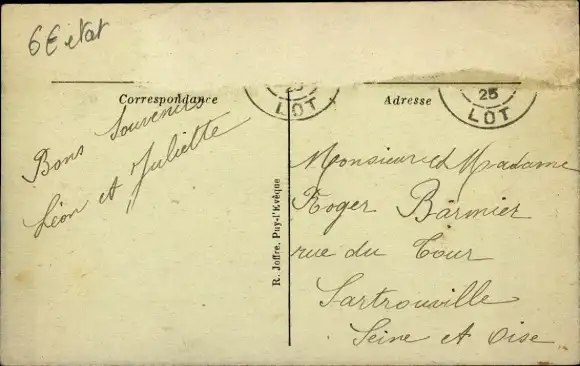 6€ etat
Correspondance
25
LOT
Adresse
25
LOT
Bons Souvenirs
Léon et Juliette
R. Joffre, Puy-l'Evêque
Monsieur et Madame
Roger Barmier
rue du Tour
Sartrouville
Seine et Oise